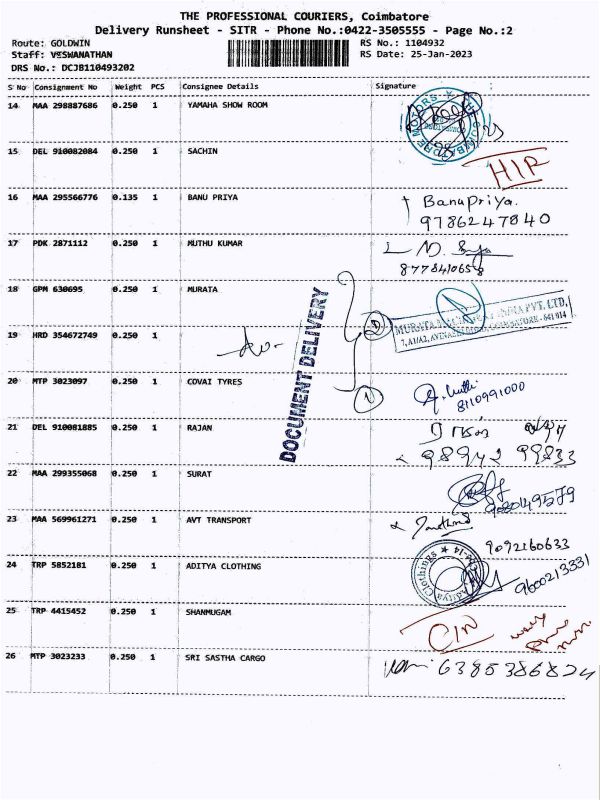 THE PROFESSIONAL COURIERS, Coimbatore
Delivery Runsheet - SITR - Phone No.:0422-3505555 - Page No.:2
Route: GOLDWIN RS No.: 1104932
Staff: VISWANATHAN RS Date: 25-Jan-2023
DRS No.: DCJB110493202
S No Consignment No Weight PCS Consignee Details Signature
14 MAA 298887686 0.250 1 YAMAHA SHOW ROOM
15 DEL 910082084 0.250 1 SACHIN
16 MAA 295566776 0.135 1 BANU PRIYA Banupriya.
9786247040
17 PDK 2871112 0.250 1 MUTHU KUMAR
8778410658
18 GPM 630695 0.250 1 MURATA
MURATA INDIA PVT. LTD.
COIMBATORE - 641 014
19 HRD 354672749 0.250 1
DOCUMENT DELIVERY
20 MTP 3023097 0.250 1 COVAI TYRES
8110991000
21 DEL 910081885 0.250 1 RAJAN
98942 99833
22 MAA 299355068 0.250 1 SURAT
23 MAA 569961271 0.250 1 AVT TRANSPORT
9092160633
24 TRP 5852181 0.250 1 ADITYA CLOTHING Aditya Clothings
9600213331
25 TRP 4415452 0.250 1 SHANMUGAM
26 MTP 3023233 0.250 1 SRI SASTHA CARGO 6385386824